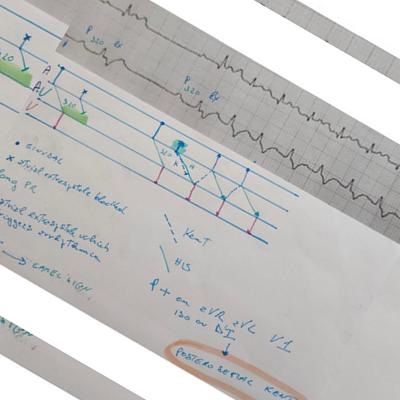 P
320
P
320
320
A
320
AV
V
• SINUSAL
x atrial extrasystole blocked
long PR
atrial extrasystole which
triggers arrhythmia
→ CAMEL SIGN
KENT
HIS
P + on aVR, aVL V1
ISO on DI
POSTERO SEPTAL KENT